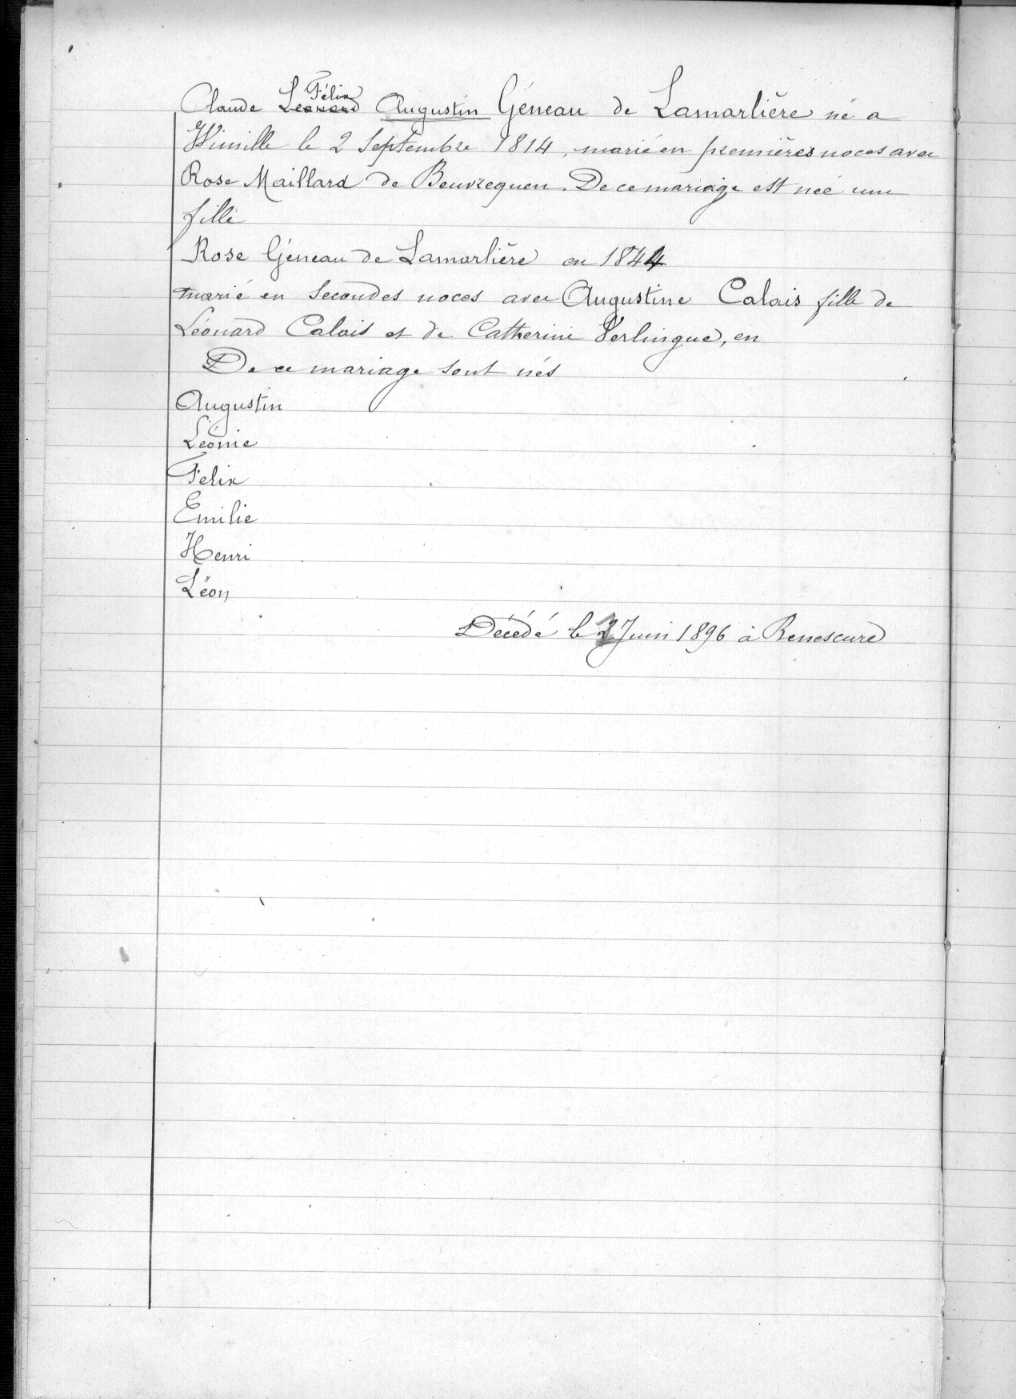 Claude Léonard Félix Augustin Géneau de Lamarlière né a
Wimille le 2 Septembre 1814, marié en premières noces avec
Rose Maillard de Beuvrequen. De ce mariage est née une
fille
Rose Géneau de Lamarlière en 1844
marié en secondes noces avec Augustine Calais fille de
Léonard Calais et de Catherine Verlingue, en
De ce mariage sont nés
Augustin
Léonie
Felix
Emilie
Henri
Léon
Décédé le 2 Juin 1896 à Renescure